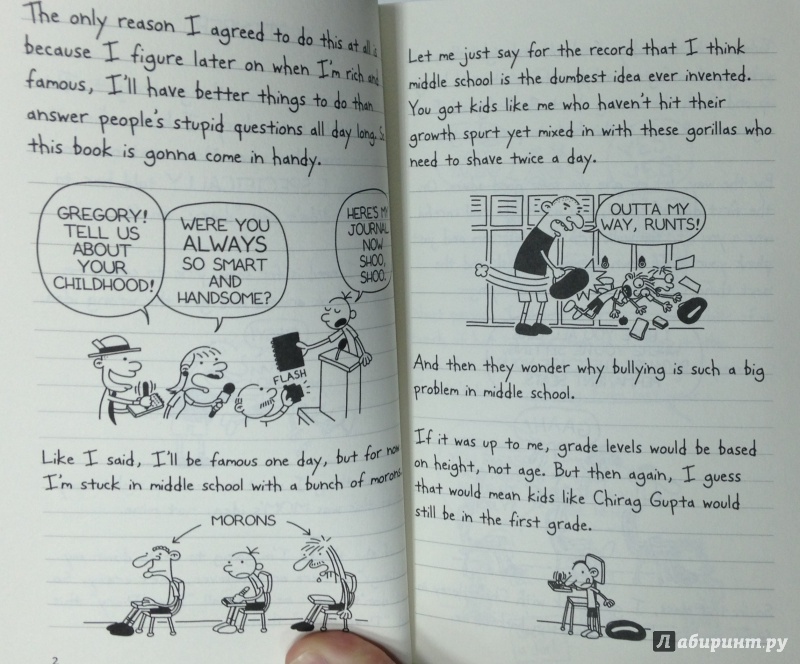 The only reason I agreed to do this at all is
because I figure later on when I'm rich and
famous, I'll have better things to do than
answer people's stupid questions all day long. So
this book is gonna come in handy.
GREGORY!
TELL US
ABOUT
YOUR
CHILDHOOD!
WERE YOU
ALWAYS
SO SMART
AND
HANDSOME?
HERE'S MY
JOURNAL
NOW
SHOO,
SHOO.
FLASH
Like I said, I'll be famous one day, but for now
I'm stuck in middle school with a bunch of morons.
MORONS
2
Let me just say for the record that I think
middle school is the dumbest idea ever invented.
You got kids like me who haven't hit their
growth spurt yet mixed in with these gorillas who
need to shave twice a day.
OUTTA MY
WAY, RUNTS!
And then they wonder why bullying is such a big
problem in middle school.
If it was up to me, grade levels would be based
on height, not age. But then again, I guess
that would mean kids like Chirag Gupta would
still be in the first grade.
Лабиринт.ру